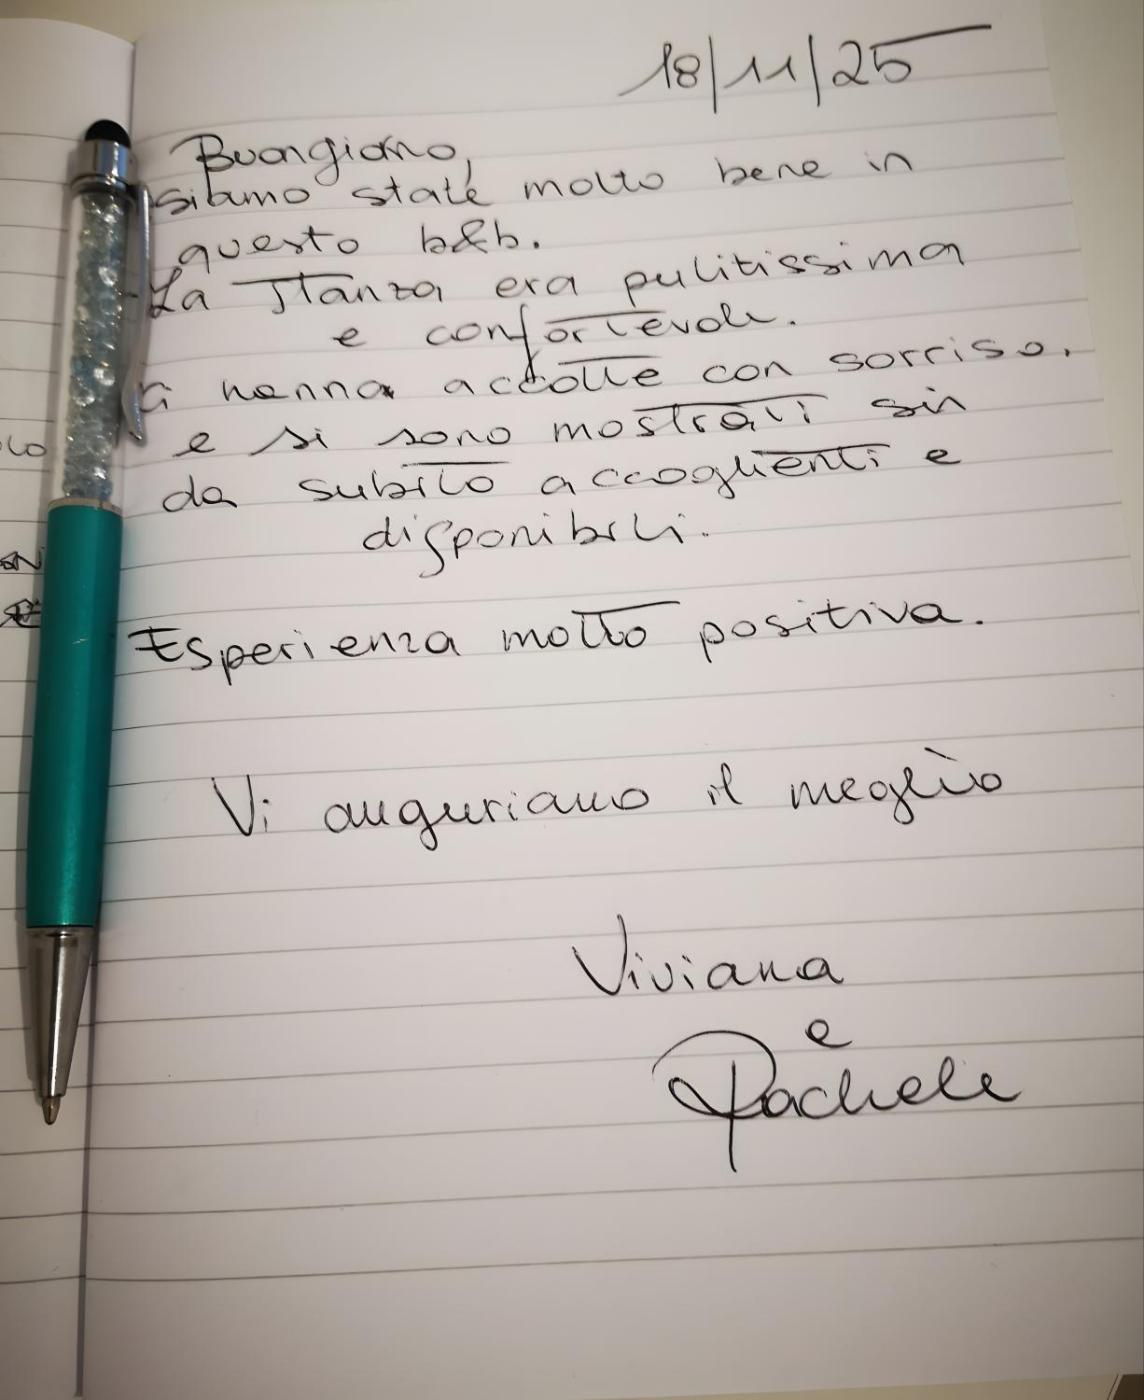 18/11/25
Buongiorno,
siamo state molto bene in
questo b&b.
La stanza era pulitissima
e confortevole.
Ci hanno accolte con sorriso,
e si sono mostrati sin
da subito accoglienti e
disponibili.
Esperienza molto positiva.
Vi auguriamo il meglio
Viviana
e
Rachele